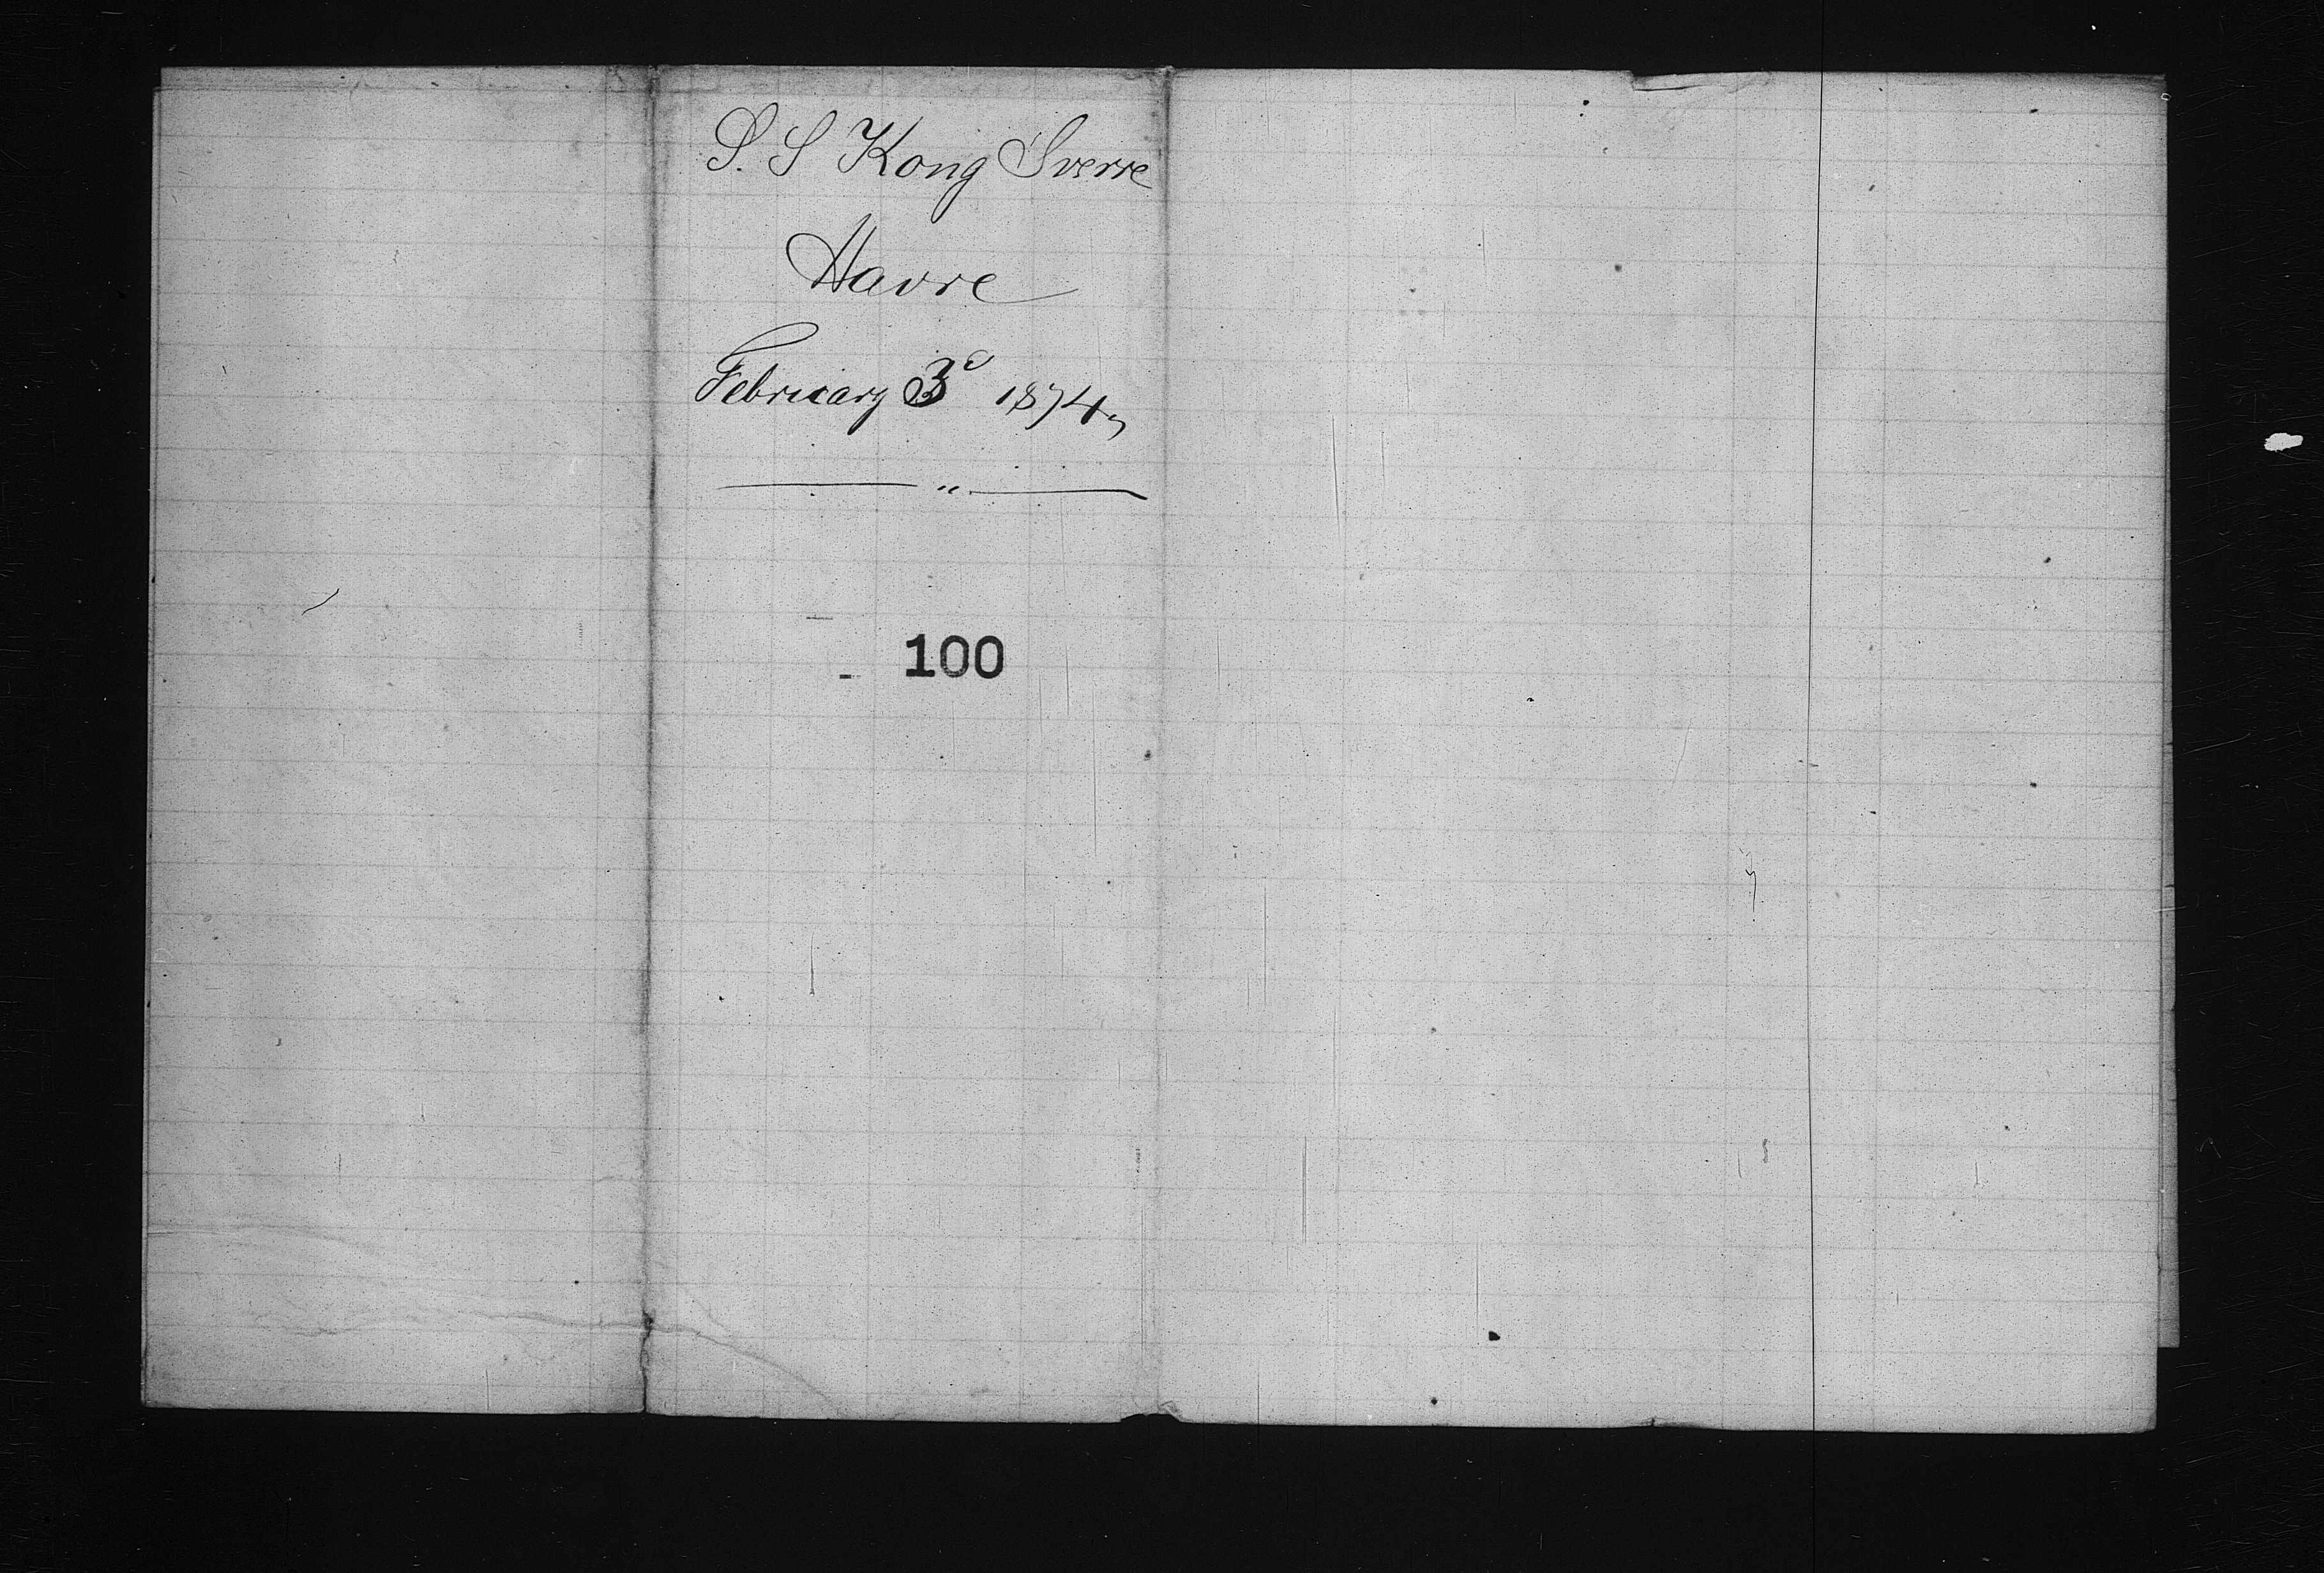 S. S Kong Sverre
Havre
February 3d 1874
100